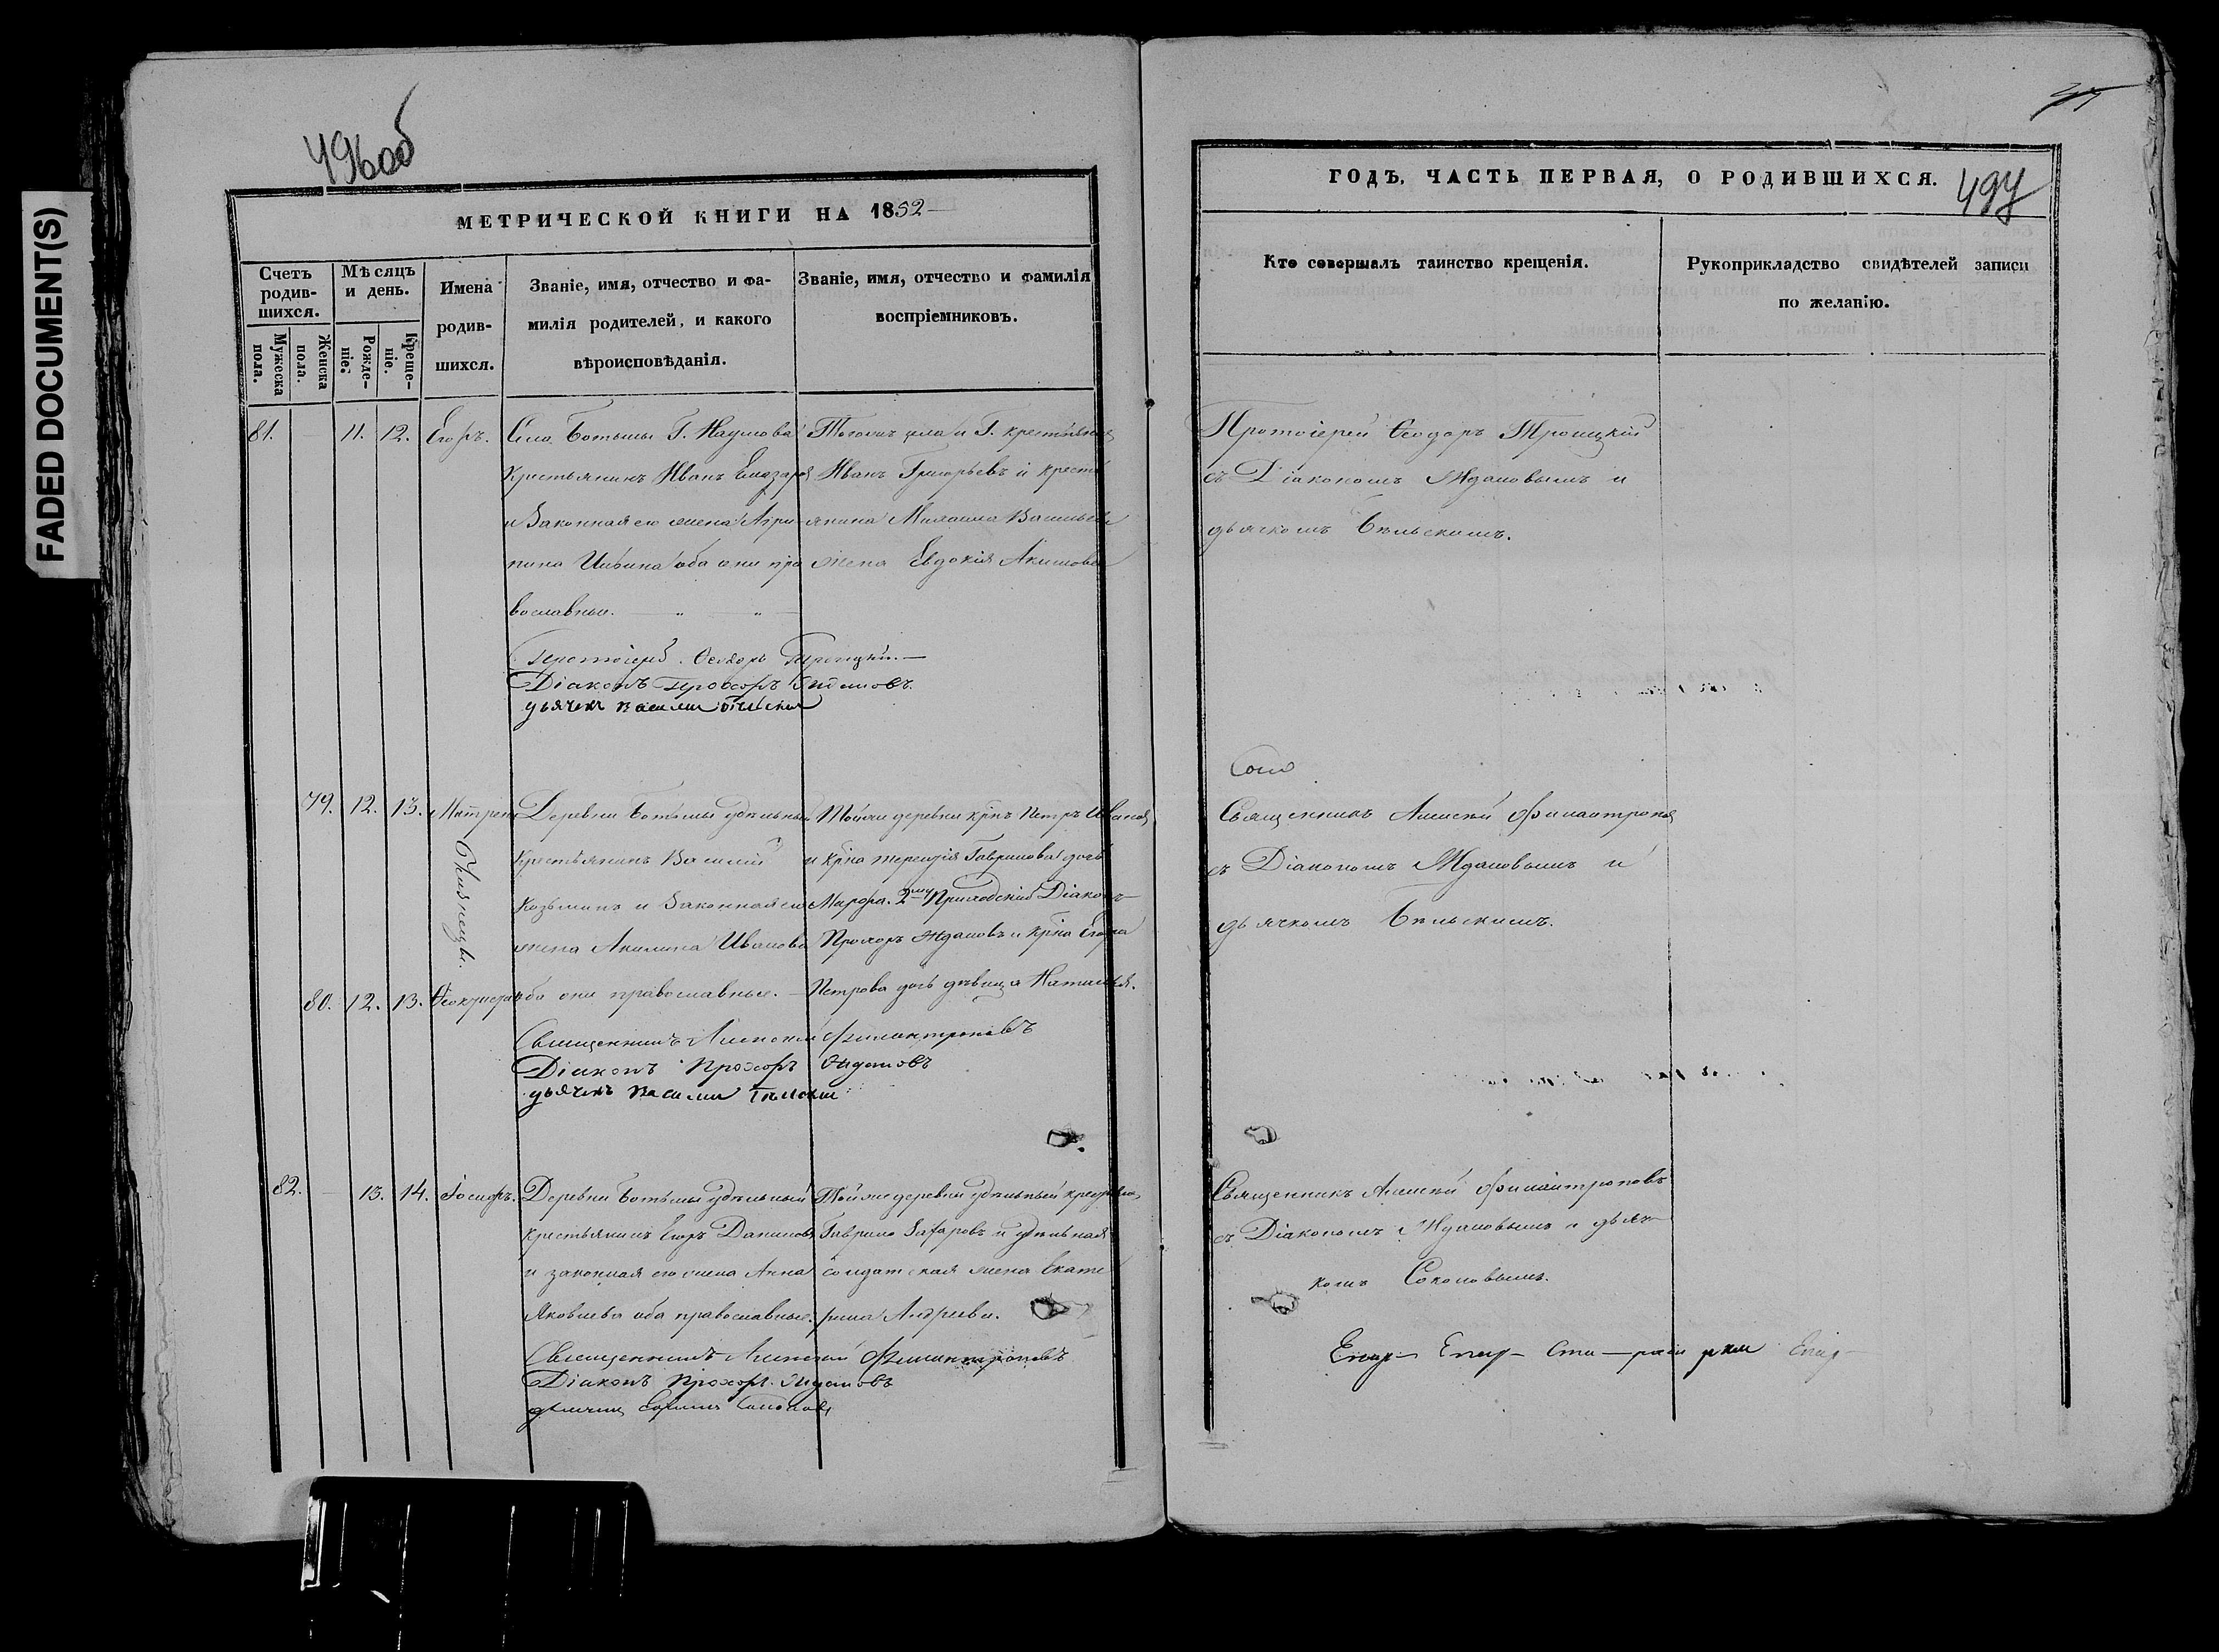 FADED DOCUMENT(S)
496об
МЕТРИЧЕСКОЙ КНИГИ НА 1852
Счетъ родившихся.
Мужеска пола.
Женска пола.
Мѣсяцъ и день.
Рожденіе.
Крещеніе.
Имена родившихся.
Званіе, имя, отчество и фамилія родителей, и какого вѣроисповѣданія.
Званіе, имя, отчество и фамилія воспріемниковъ.
81. — 11. 12. Егоръ.
Села Ботьмы Г. Наумова
крестьянинъ Иванъ Елазаровъ
и законная его жена Агри-
пина Ильина оба они пра
вославные.
Тогожъ села и Г. крестьянинъ
Иванъ Григорьевъ и кресть
янина Михаила Васильева
жена Евдокія Акимова
Протоіерей Ѳеодоръ Троицкій.
Діаконъ Прохоръ Ждановъ.
дьячекъ Василій Бѣльскій
79. 12. 13. Матрена
Близнецы.
80. 12. 13. Ѳеоктиста
Деревни Ботьмы удѣльный
крестьянинъ Василій
Козьминъ и законная его
жена Акилина Иванова
оба они православные.
Тойже деревни крнъ Петръ Ивановъ
и крна Терентія Гаврилова дочь
Марфа. 2му Приходскій Діаконъ
Прохоръ Ждановъ и крна Егора
Петрова дочь дѣвица Наталья.
Священникъ Алексѣй Филантроповъ
Діаконъ Прохоръ Ждановъ
дьячекъ Василій Бѣльскій
82. — 13. 14. Іосифъ.
Деревни Ботьмы удѣльный
крестьянинъ Егоръ Даниловъ
и законная его жена Анна
Яковлева оба православные.
Тойже деревни удѣльный крестьянинъ
Гаврило Захаровъ и удѣльная
солдатская жена Екате
рина Андреева.
Священникъ Алексѣй Филантроповъ
Діаконъ Прохоръ Ждановъ
497
ГОДЪ, ЧАСТЬ ПЕРВАЯ, О РОДИВШИХСЯ.
Кто совершалъ таинство крещенія.
Рукоприкладство свидѣтелей записи по желанію.
Протоіерей Ѳеодоръ Троицкій
съ Діакономъ Ждановымъ и
дьячкомъ Бѣльскимъ.
Священникъ Алексѣй Филантроповъ
съ Діакономъ Ждановымъ и
дьячкомъ Бѣльскимъ.
Священникъ Алексѣй Филантроповъ
съ Діакономъ Ждановымъ и дьяч-
комъ Соколовымъ.